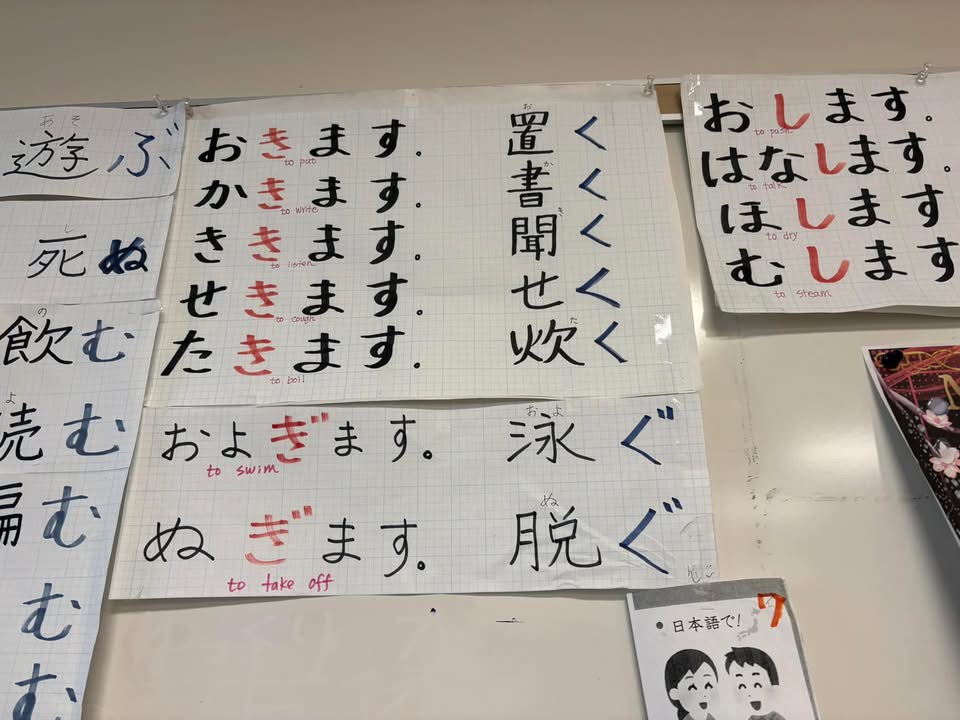 あそ
遊ぶ
し
死ぬ
の
飲む
よ
読む
む
む
む
おきます。 置く
お
to put
かきます。 書く
か
to write
ききます。 聞く
き
to listen
せきます。 せく
to cough
たきます。 炊く
た
to boil
およぎます。 泳ぐ
およ
to swim
ぬぎます。 脱ぐ
ぬ
to take off
おします。
to push
はなします。
to talk
ほします
to dry
むします
to steam
• 日本語で!
7